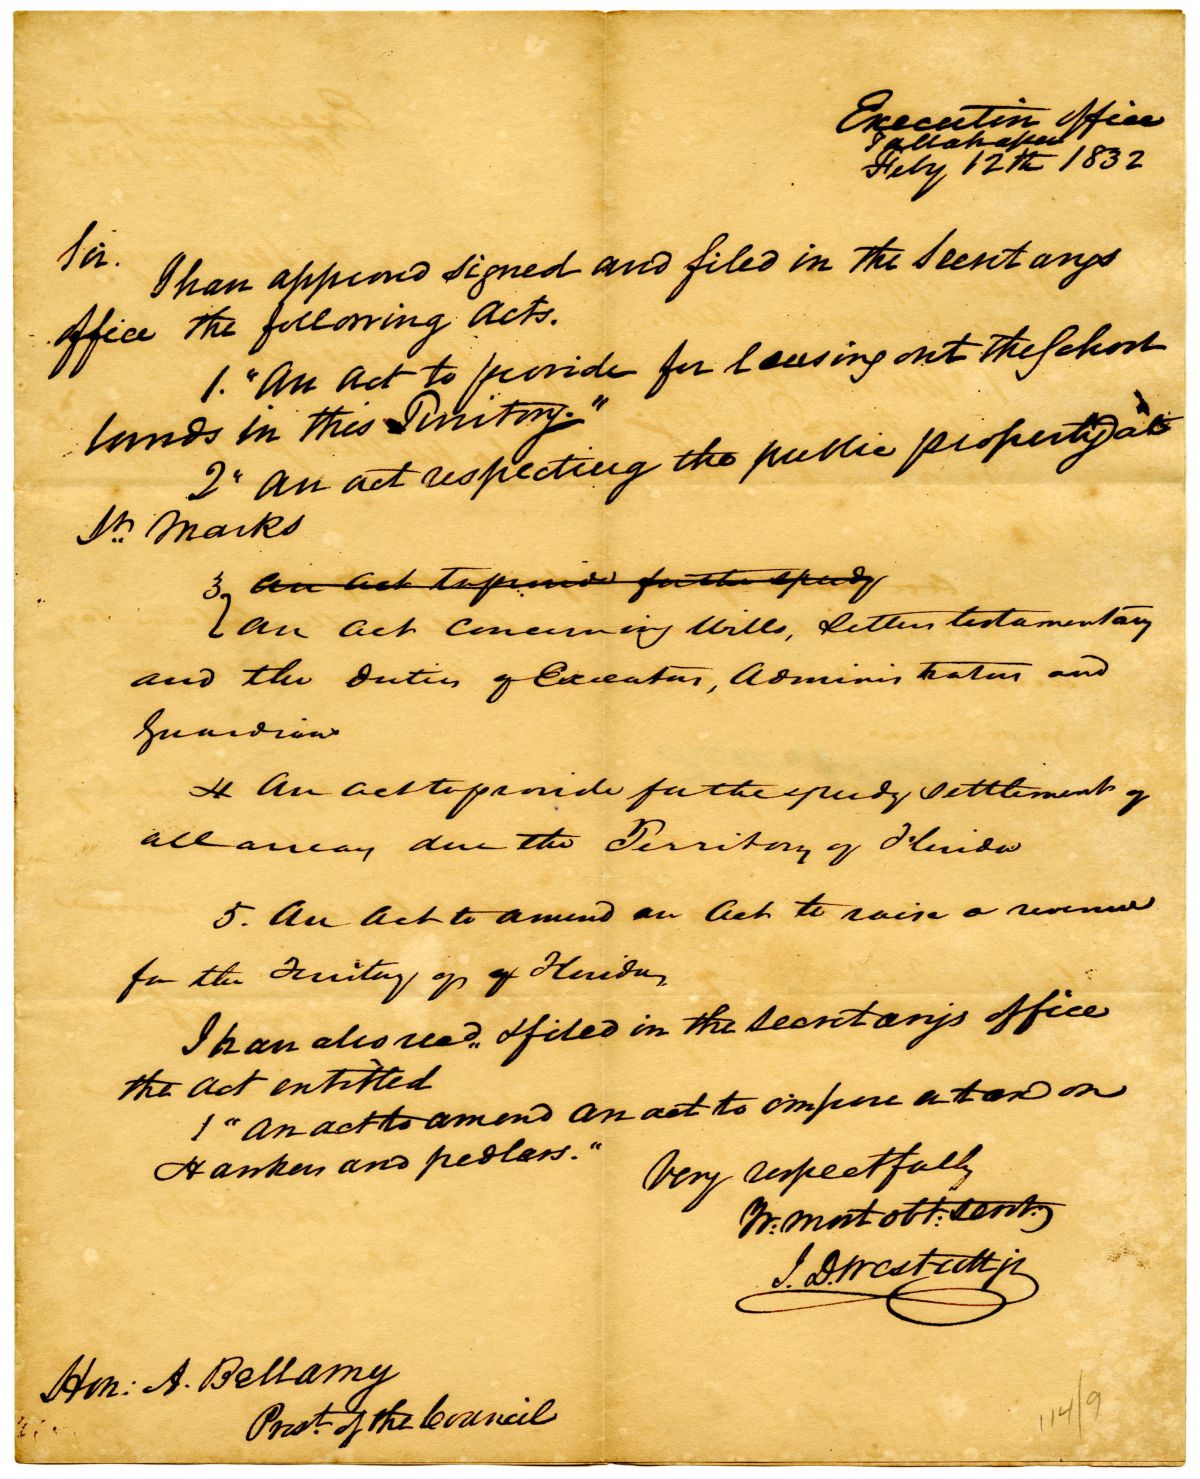 Executive office
Tallahassee
Feby 12th 1832
Sir.
I have approved signed and filed in the Secretarys
office the following Acts.
1. "An Act to provide for leasing out the School
lands in this Territory."
2 "An act respecting the public property at
St. Marks
3 An Act to provide for the speedy
An Act concerning Wills, Letters testamentary
and the duties of Executors, Administrators and
Guardians
4 An act to provide for the speedy settlement of
all arrears due the Territory of Florida
5. An Act to amend an Act to raise a revenue
for the Territory of of Florida,
I have also recd. & filed in the Secretary's office
the Act entitled
1 "An act to amend an act to impose a tax on
Hawkers and pedlars."
Very respectfully
Yr. most obt. Servt.
J. D. Westcott jr
Hon: A. Bellamy
Prest. of the Council
114/9